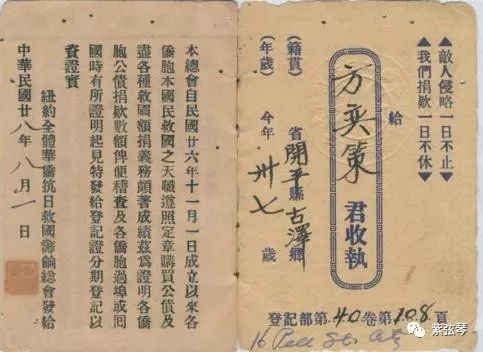 ▲敵人侵略一日不止▲
▲我們捐款一日不休▲
給
方奕策君收執
(籍貫) 省開平縣古澤鄉
(年歲) 今年卅七歲
登記部第40卷第108頁
16 Pell St
本總會自民國廿六年十一月一日成立以來各
僑胞本國民救國之天職遵照定章購買公債及
盡各種救國額捐義務頗著成績茲爲證明各僑
胞公債捐款數額俾便稽查及各僑胞過埠或囘
國時有所證明起見特發給登記證分期登記以
資證實
紐約全體華僑抗日救國籌餉總會發給
中華民國廿八年八月一日
紫弦琴